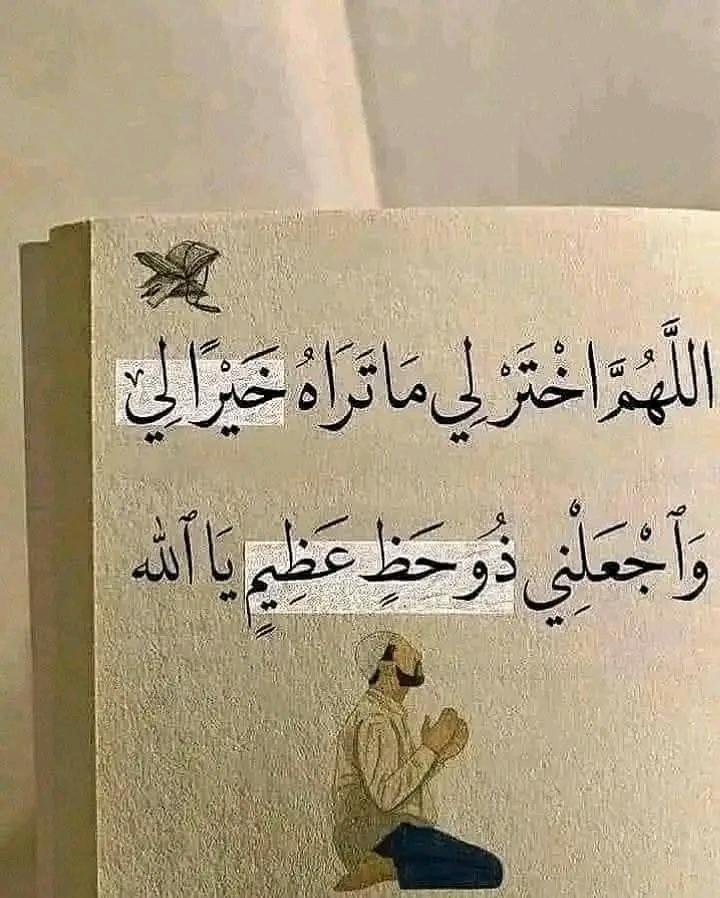 اللَّهُمَّ اخْتَرْ لِي مَا تَرَاهُ خَيْرًا لِي
وَٱجْعَلْنِي ذُو حَظٍ عَظِيمٍ يَا ٱللّٰه